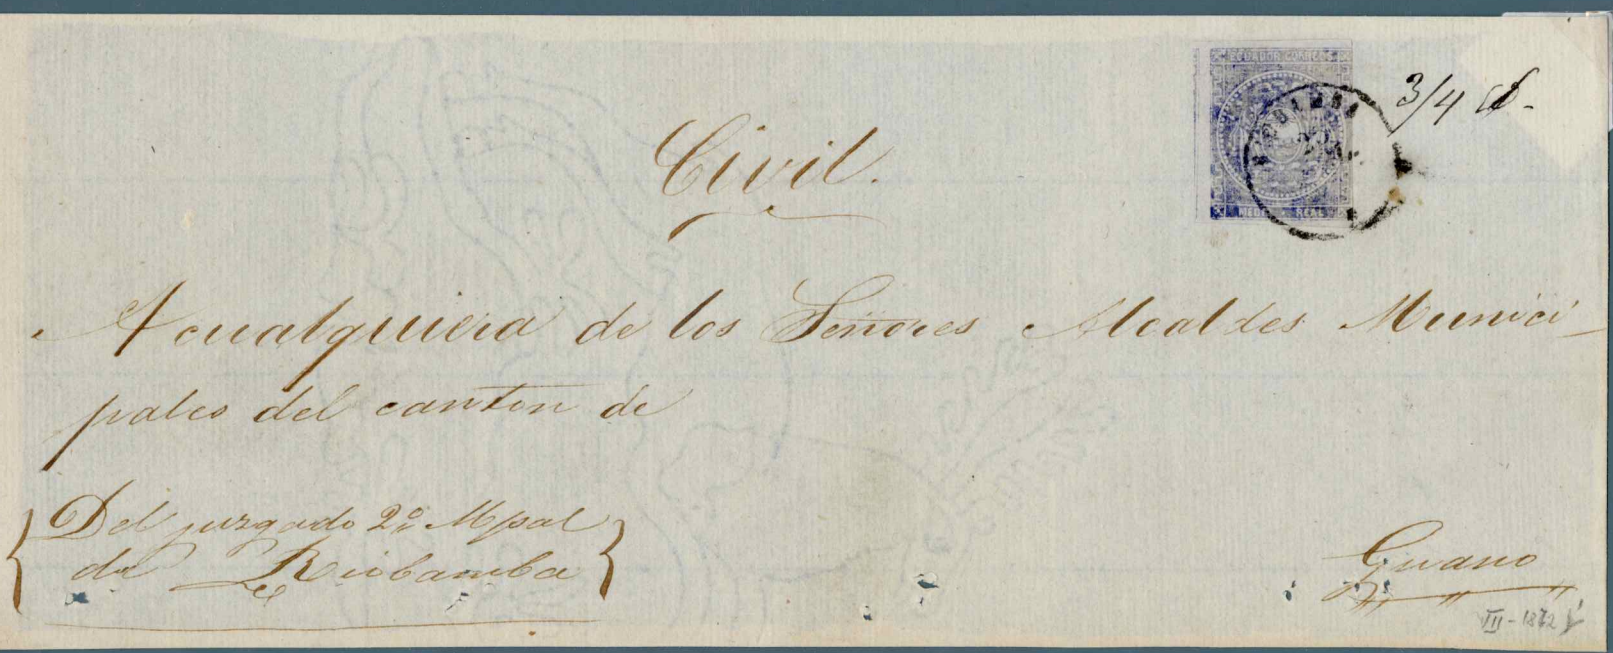 ECUADOR CORREOS
MEDIO REAL
RIOBAMBA
3/4
Civil.
A cualquiera de los Señores Alcaldes Munici-
pales del canton de
Del juzgado 2º Mpal
de Riobamba
Guano
VII-1872